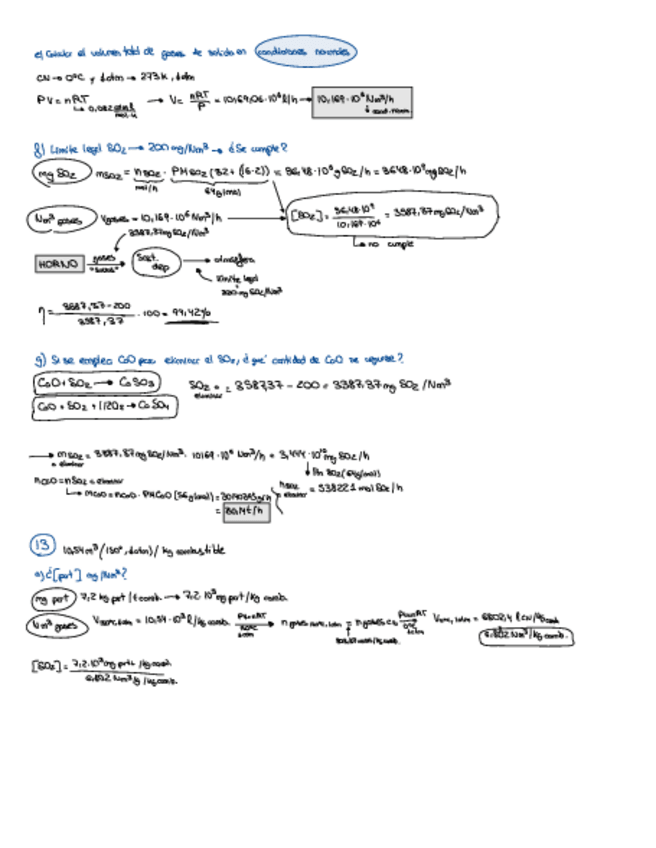 e) Calcular el volumen total de gases de salida en condiciones normales
CN → 0ºC y 1 atm → 273K, 1 atm
PV = nRT → V = nRT/P = 10169,06·10⁶ l/h → 10,169·10⁶ Nm³/h
↳ 0,082 atm·l/mol·K
f) Límite legal SO₂ → 200 mg/Nm³ → ¿Se cumple?
mg SO₂ mSO₂ = nSO₂ · PMSO₂ (32 + (16·2)) = 36,48·10⁶ g SO₂/h = 36,48·10⁹ mg SO₂/h
mol/h 64 g/mol
Nm³ gases Vgases = 10,169·10⁶ Nm³/h → [SO₂] = 36,48·10⁹ / 10,169·10⁶ = 3587,37 mg SO₂/Nm³
↳ no cumple
3587,37 mg SO₂/Nm³
HORNO gases "sucios" → Sist. dep → atmósfera
límite legal
200 mg SO₂/Nm³
η = 3587,37 - 200 / 3587,37 · 100 = 94,42%
g) Si se emplea CaO para eliminar el SO₂, ¿qué cantidad de CaO se requiere?
CaO + SO₂ → CaSO₃ SO₂ eliminar = 3587,37 - 200 = 3387,37 mg SO₂/Nm³
CaO + SO₂ + 1/2O₂ → CaSO₄
→ mSO₂ eliminar = 3387,37 mg SO₂/Nm³ · 10,169·10⁶ Nm³/h = 3,444·10¹⁰ mg SO₂/h
↓ PM SO₂ (64 g/mol)
nCaO = nSO₂ eliminar nSO₂ eliminar = 538221 mol SO₂/h
↳ mCaO = nCaO · PMCaO (56 g/mol) = g/h
= 30,14 t/h
13 10,54 m³ (150º, 1 atm) / kg combustible
a) ¿[part] mg/Nm³?
mg part 7,2 kg part / t comb. → 7,2·10³ mg part/kg comb.
Nm³ gases = 10,54·10³ l/kg comb. → n gases → n gases → = 6802,4 l CN/kg comb
6,802 Nm³/kg comb.
[SO₂] = 7,2·10³ mg part /kg comb. / 6,802 Nm³ /kg comb.